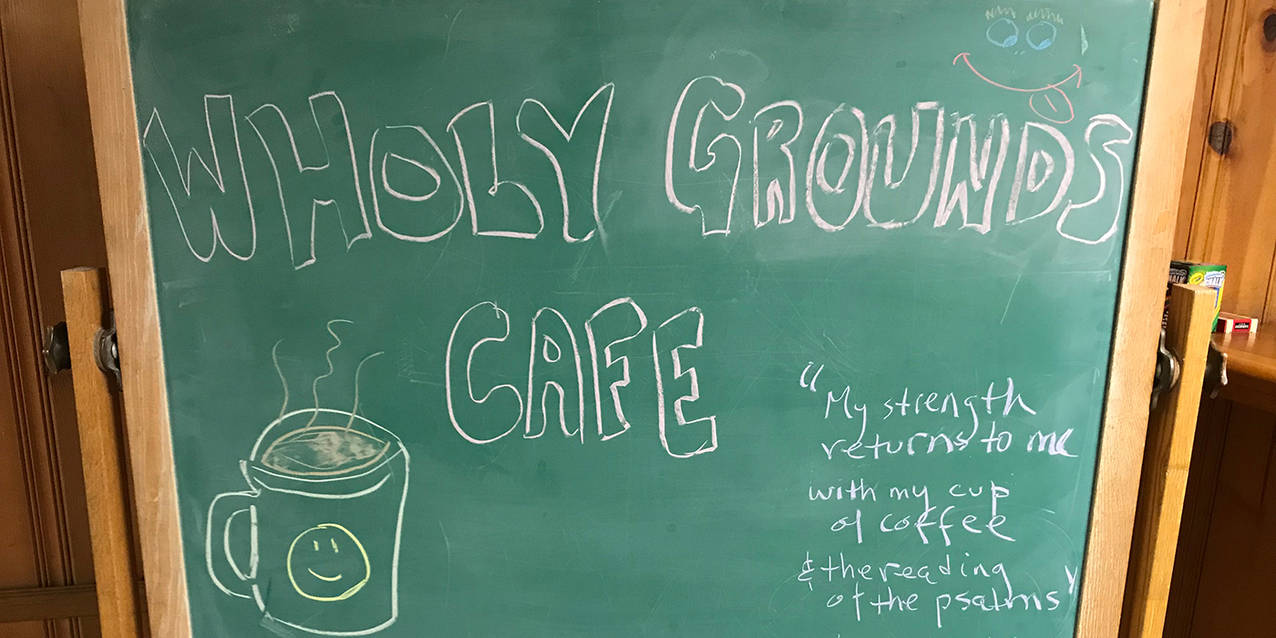 WHOLY GROUNDS
CAFE
"My strength
returns to me
with my cup
of coffee
& the reading
of the psalms"